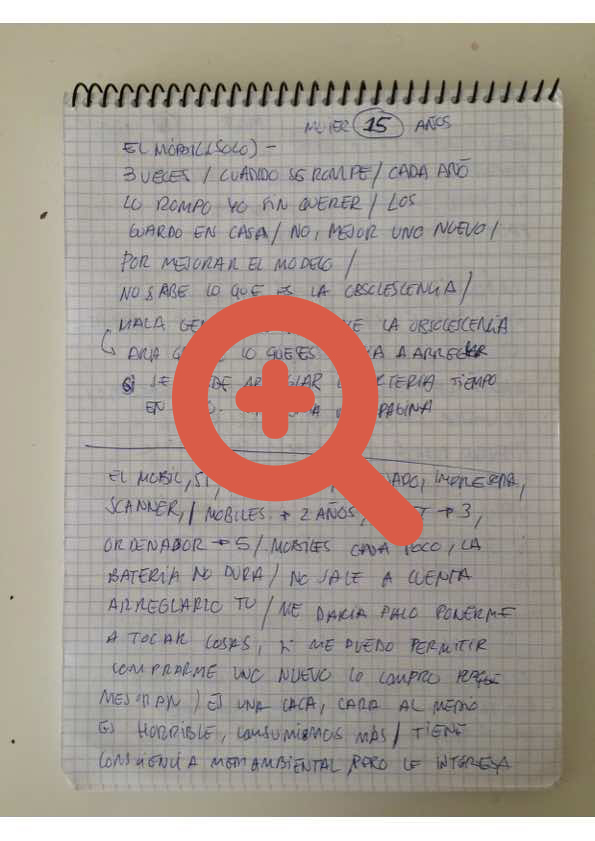 MUJER 15 AÑOS
EL MÓBIL (SOLO) -
3 VECES / CUANDO SE ROMPE / CADA AÑO
LO ROMPO YO SIN QUERER / LOS
GUARDO EN CASA / NO, MEJOR UNO NUEVO /
POR MEJORAR EL MODELO /
NO SABE LO QUE ES LA OBSOLESCENCIA /
MALA LA OBSOLESCENCIA
LO QUE ES A ARREGLAR
SI SE TIEMPO
EN PAGINA
EL MOBIL, IMPRESORA,
SCANNER, / MOBILES → 2 AÑOS, → 3,
ORDENADOR → 5 / MOBILES CADA POCO, LA
BATERIA NO DURA / NO SALE A CUENTA
ARREGLARLO TU / ME DARIA PALO PONERME
A TOCAR COSAS, SI ME PUEDO PERMITIR
COMPRARME UNO NUEVO LO COMPRO
MEJORAN / ES UNA CACA, CARA AL MEDIO
ES HORRIBLE, CONSUMIMOS MÁS / TIENE
CONSCIENCIA MEDIAMBIENTAL, PERO LE INTERESA